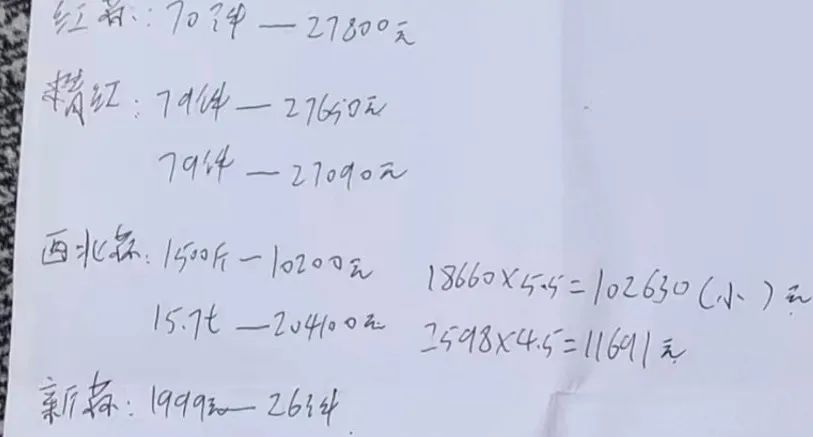 红蒜: 70件 — 27800元
精红: 79件 — 27650元
79件 — 27090元
西北蒜: 1500斤 — 10200元
15.7t — 204100元
18660×5.5=102630(小)元
2598×4.5=11691元
新蒜: 1999元 — 26件